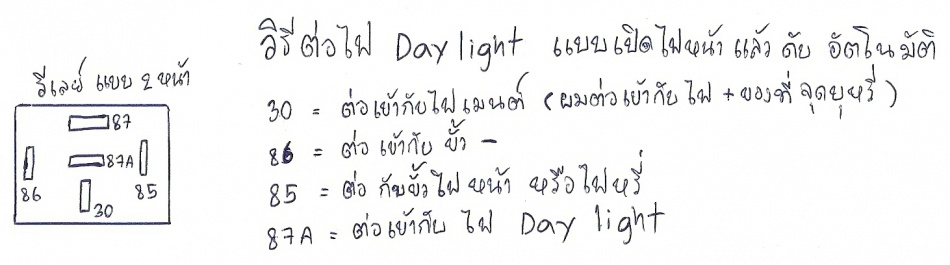 วิธีต่อไฟ Day light แบบเปิดไฟหน้า แล้ว ดับ อัตโนมัติ
รีเลย์ แบบ 2 หน้า
87
87A
86
85
30
30 = ต่อเข้ากับไฟเมนต์ (ผมต่อเข้ากับ ไฟ + ของที่ จุดบุหรี่)
86 = ต่อ เข้ากับ ขั้ว -
85 = ต่อ กับขั้วไฟหน้า หรือไฟหรี่
87A = ต่อเข้ากับ ไฟ Day light